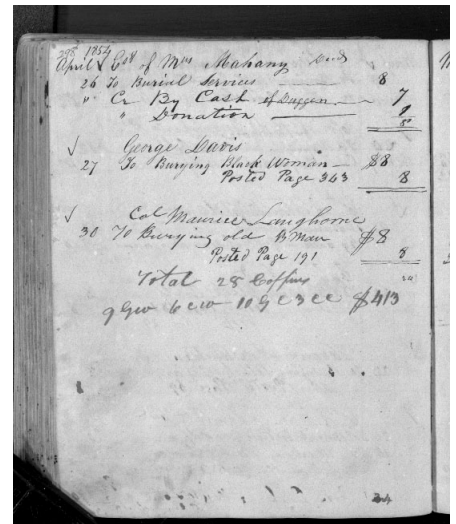 298 1854
April Est of Mrs Mahany
26 To Burial Services 8
" Cr By Cash of Duggan 7
" Donation
√ George Davis
27 To Burying Black Woman $8
Posted Page 343 8
√ Col Maurice Langhorne
30 To Burying old B Man $8
Posted Page 191 8
Total 28 Coffins
9 G w 6 c w 10 G c 3 c c $413